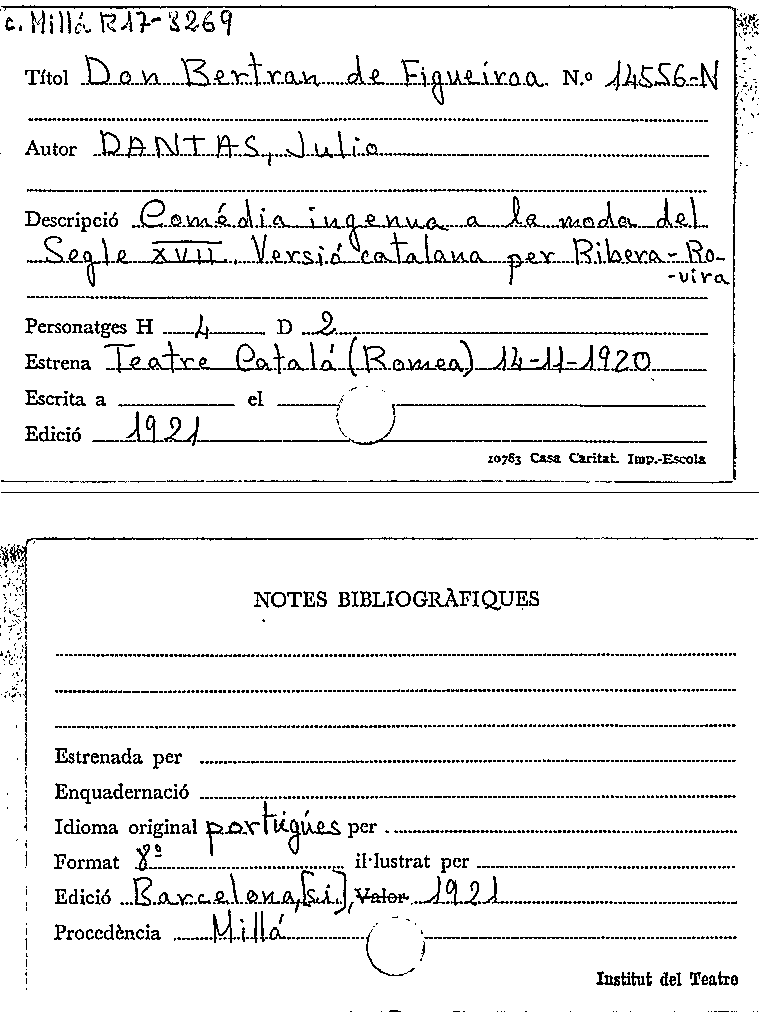 c. Millá R17-3269
Títol Don Bertran de Figueiroa N.º 14556-N
Autor DANTAS, Julio
Descripció Comédia ingenua a la moda del
Segle XVII. Versió catalana per Ribera-Ro-
-vira
Personatges H 4 D 2
Estrena Teatre Catalá (Romea) 14-11-1920
Escrita a el
Edició 1921
10763 Casa Caritat. Imp.-Escola
NOTES BIBLIOGRÀFIQUES
Estrenada per
Enquadernació
Idioma original portugúes per
Format 8º il·lustrat per
Edició Barcelona, [s.i.], Valor 1921
Procedència Millá
Institut del Teatre